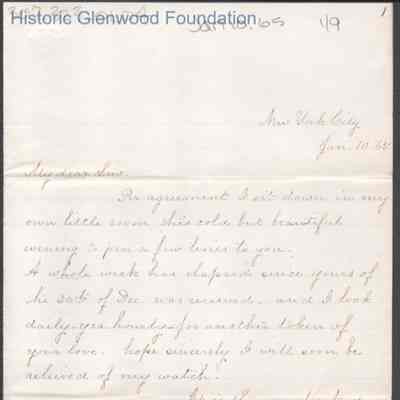 Historic Glenwood Foundation
Jan 10. 65 1/9
1
New York City
Jan. 10. 65
My dear Sim.
Per agreement I sit down in my
own little room this cold but beautiful
evening to pen a few lines to you.
A whole week has elapsed since yours of
the 30th of Dec. was received. and I look
daily-yes hourly-for another token of
your love. hope sincerely I will soon be
relieved of my watch.